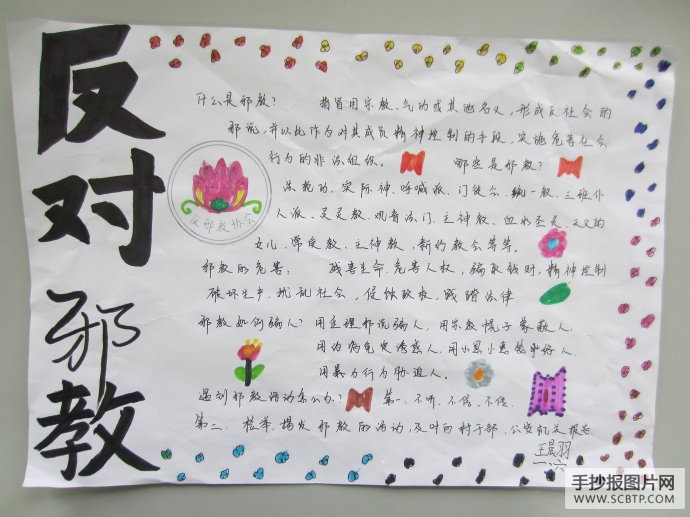 反对邪教
什么是邪教？ 指冒用宗教、气功或其他名义，形成反社会的
邪说，并以此作为对其成员精神控制的手段，实施危害社会
行为的非法组织。 哪些是邪教？
法轮功、实际神、呼喊派、门徒会、统一教、三班仆
人派、灵灵教、观音法门、主神教、血水圣灵、天父的
女儿、常受教、主神教、新约教会等等。
反邪教协会
邪教的危害： 残害生命、危害人权，骗取钱财，精神控制
破坏生产，扰乱社会，侵蚀政权，践踏法律
邪教如何骗人？用歪理邪说骗人，用宗教幌子蒙蔽人，
用治病免灾诱惑人，用小恩小惠
用暴力行为胁迫人。
遇到邪教活动怎么办？ 第一、不听、不信、不传、
第二、检举、揭发邪教的活动，及时向村干部、公安机关报告
一、六
手抄报图片网
WWW.SCBTP.COM